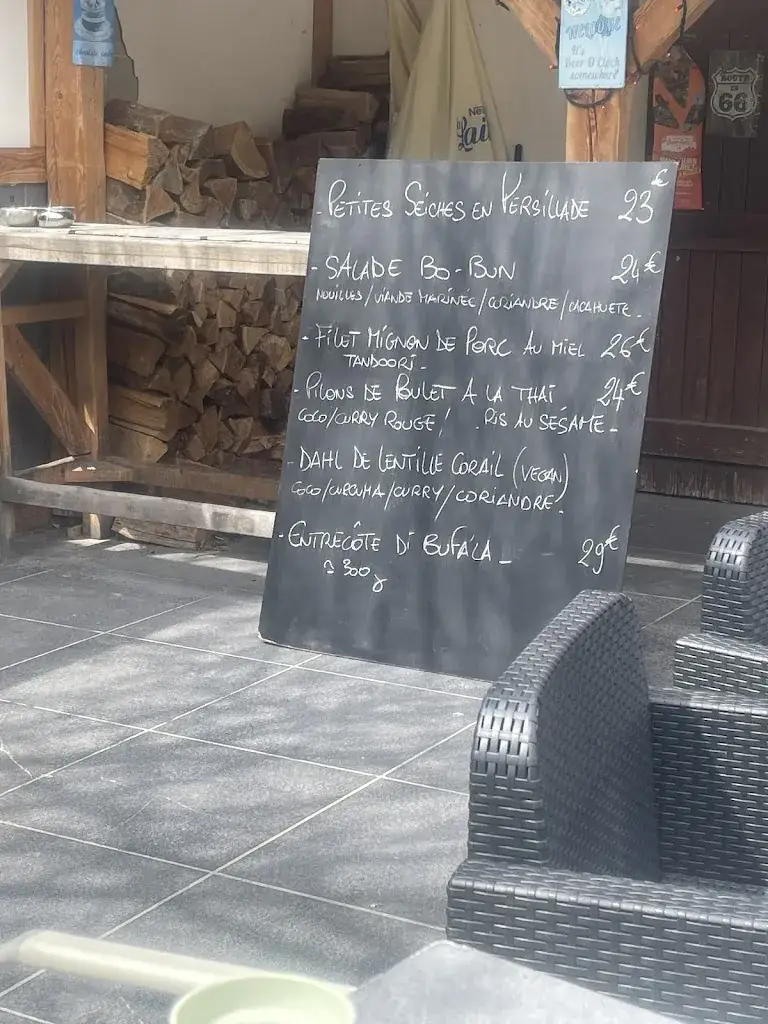 WELCOME
It's
Beer O'Clock
somewhere!
ROUTE
US
66
- PETITES SEICHES EN PERSILLADE 23€
- SALADE BO-BUN 24€
NOUILLES/VIANDE MARINÉE/CORIANDRE/CACAHUETE.
- FILET MIGNON DE PORC AU MIEL 26€
TANDOORI.
- PILONS DE POULET A LA THAÏ 24€
COCO/CURRY ROUGE/ RIS AU SÉSAME -
- DAHL DE LENTILLE CORAIL (VEGAN)
COCO/CURCUMA/CURRY/CORIANDRE.
- ENTRECÔTE DI BUFALA - 29€
≈ 300g